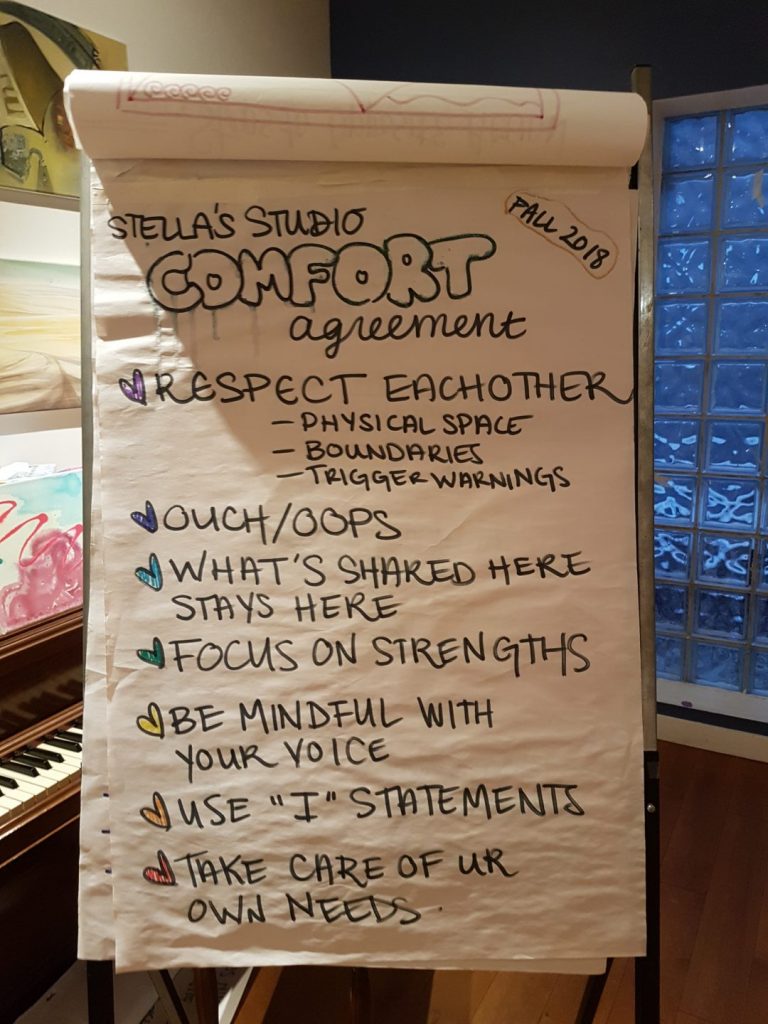 STELLA'S STUDIO
FALL 2018
COMFORT
agreement
RESPECT EACHOTHER
– PHYSICAL SPACE
– BOUNDARIES
– TRIGGER WARNINGS
OUCH/OOPS
WHAT'S SHARED HERE
STAYS HERE
FOCUS ON STRENGTHS
BE MINDFUL WITH
YOUR VOICE
USE "I" STATEMENTS
TAKE CARE OF UR
OWN NEEDS.